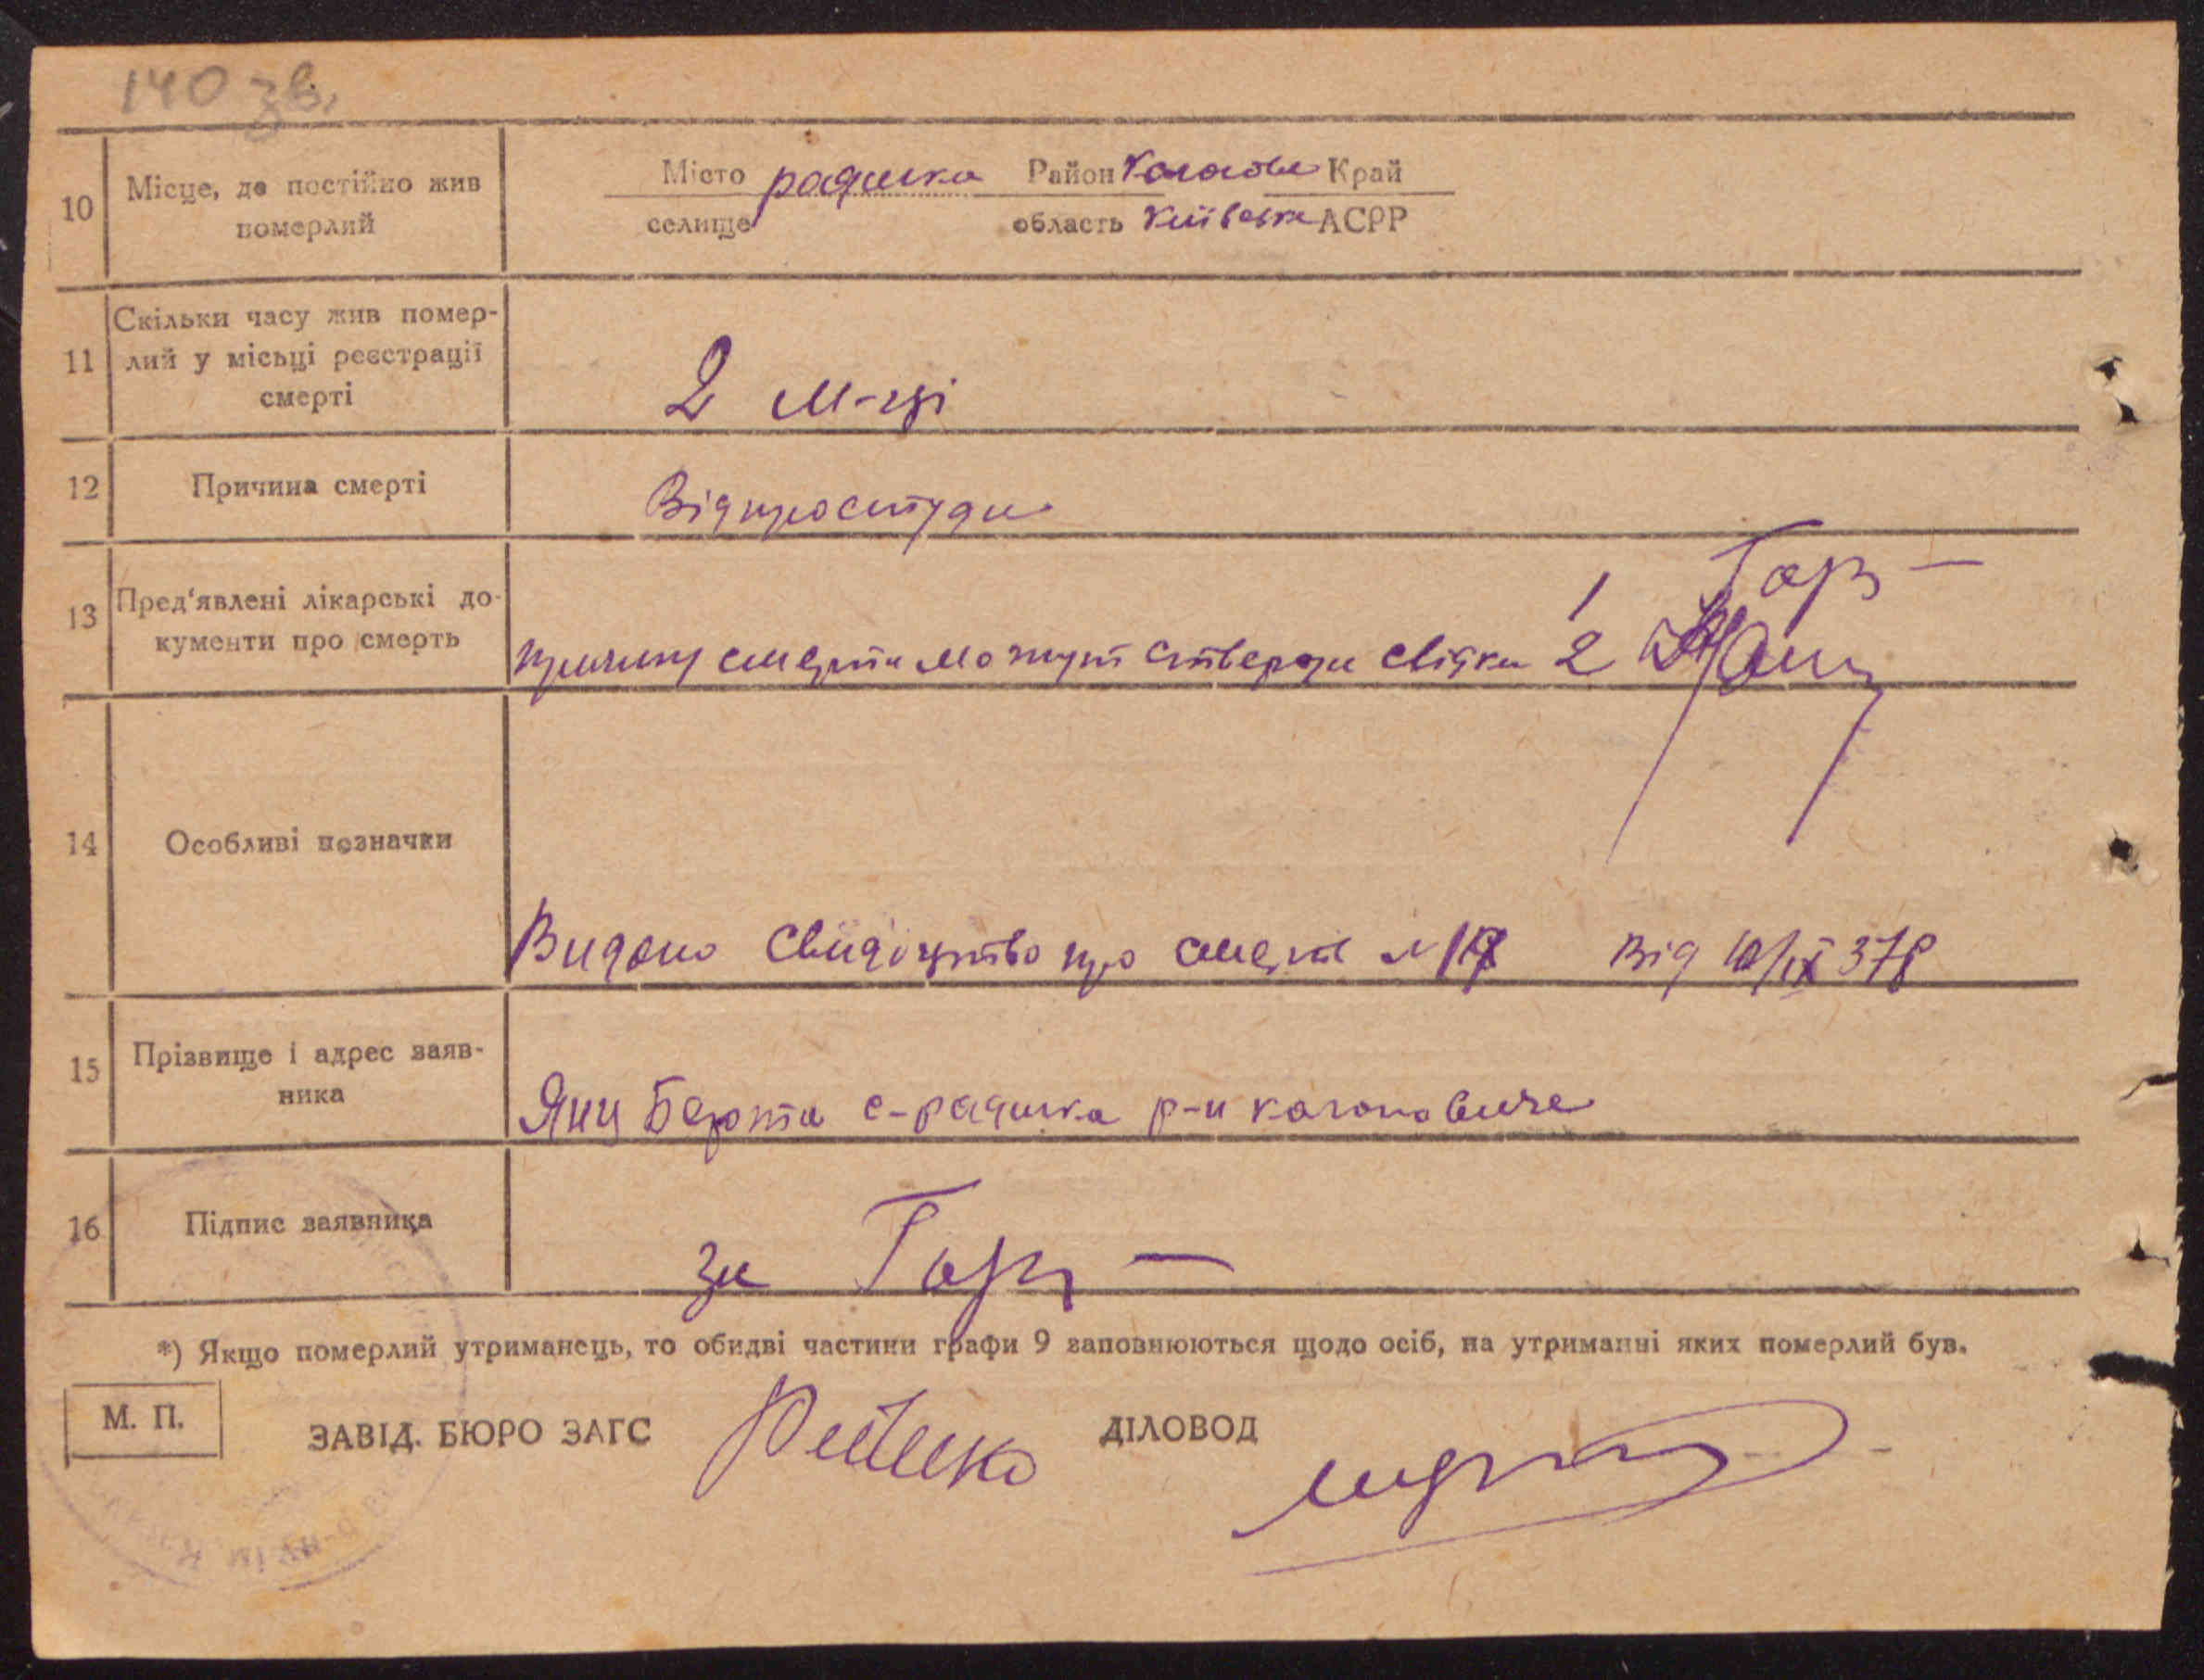 140 зв.
10 Місце, де постійно жив померлий
Місто радика Район Каганов Край
селище область Київська АСРР
11 Скільки часу жив помер-
лий у місьці реєстрації
смерті
2 м-ці
12 Причина смерті
Від простуди
13 Пред'явлені лікарські до-
кументи про смерть
1 Гарз —
причину смерти можут ствердн свідки 2
14 Особливі позначки
Видано свидоцтво про смерть № 17 Від 10/IX 37р
15 Прізвище і адрес заяв-
ника
Янц Берта с-радика р-н кагановиче
16 Підпис заявника
за Гарз —
*) Якщо померлий утриманець, то обидві частини графи 9 заповнюються щодо осіб, на утриманні яких померлий був.
М. П.
ЗАВІД. БЮРО ЗАГС ДІЛОВОД